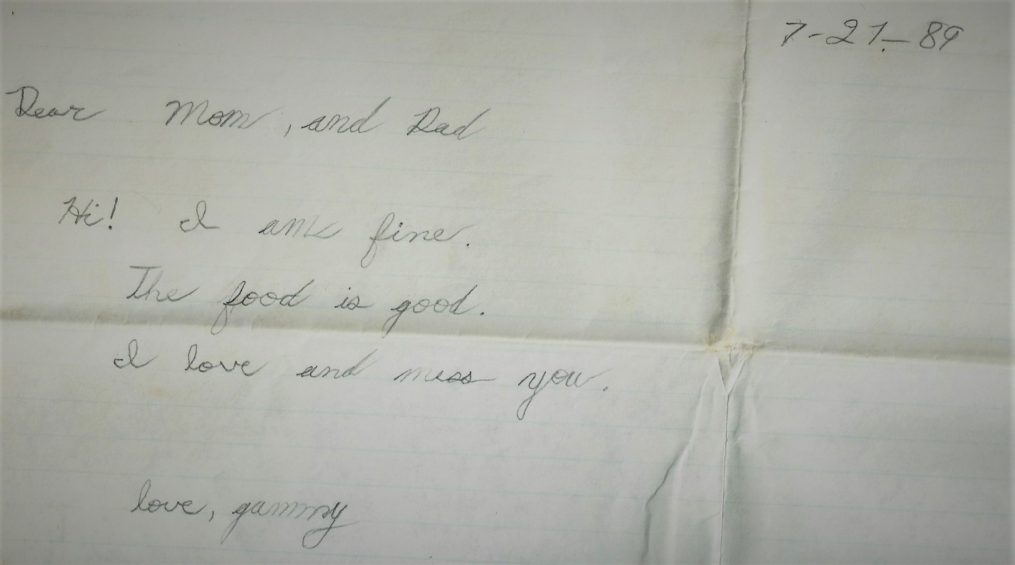 7-21-89
Dear Mom, and Dad
Hi! I am fine.
The food is good.
I love and miss you.
love, gammy